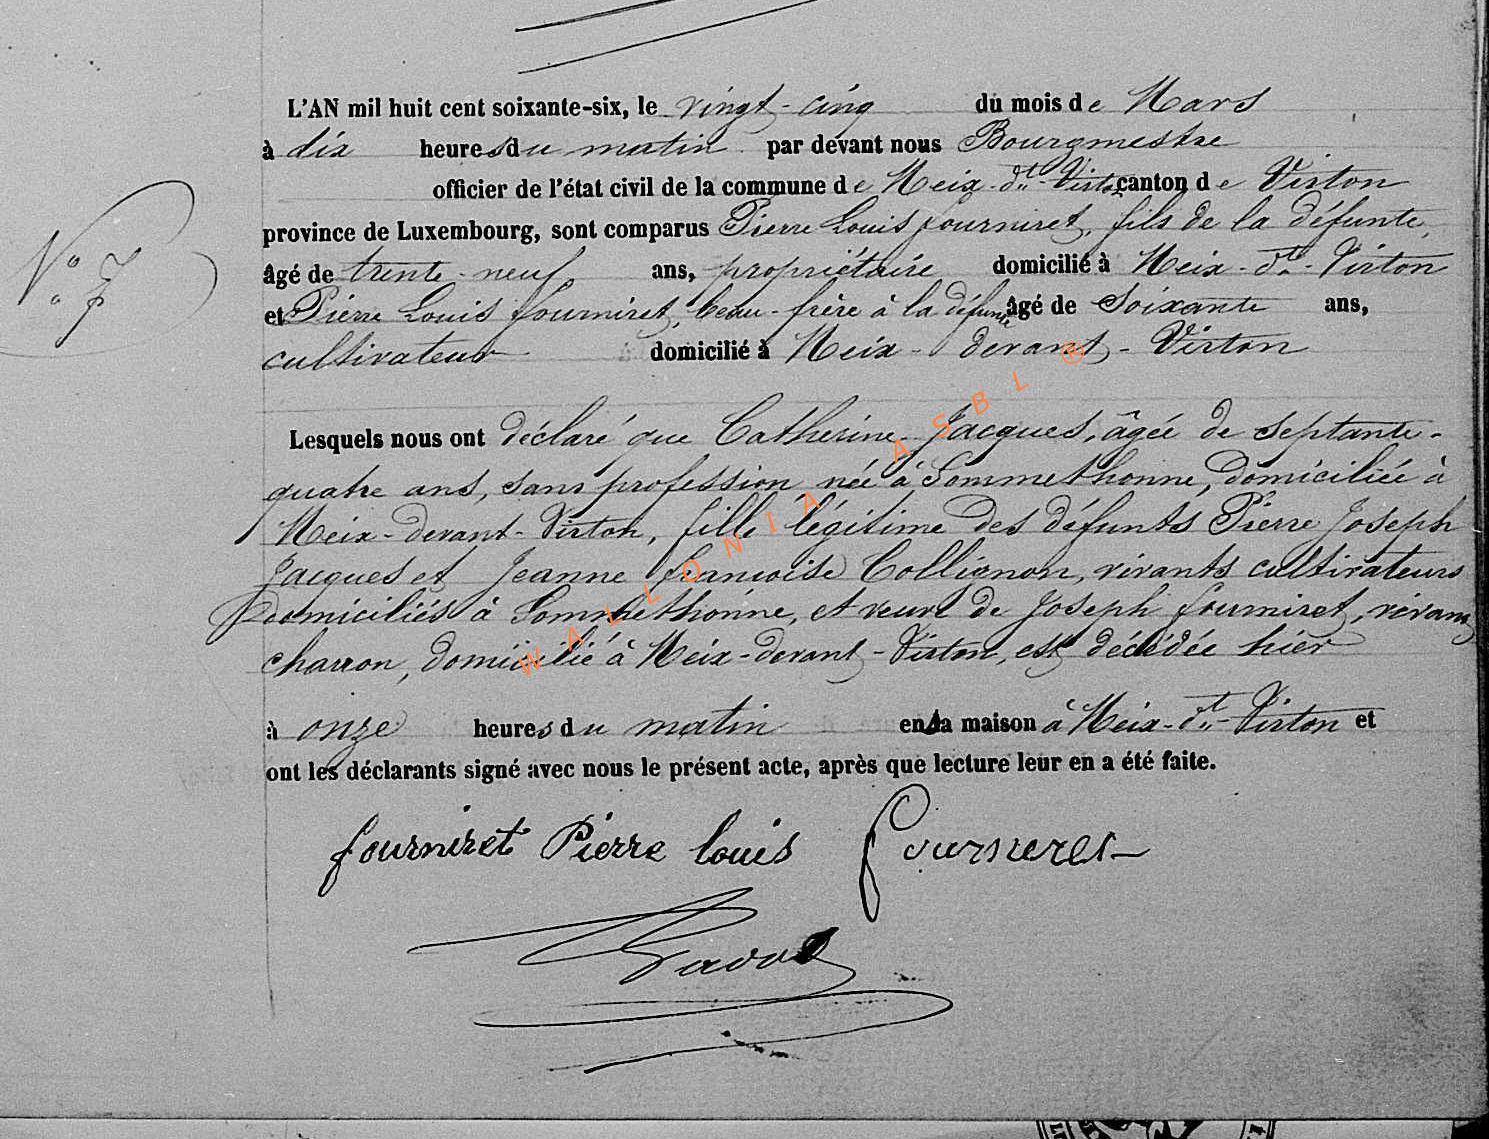 L'AN mil huit cent soixante-six, le vingt-cinq du mois de Mars
à dix heures du matin par devant nous Bourgmestre
officier de l'état civil de la commune de Meix-dt-Virton canton de Virton
province de Luxembourg, sont comparus Pierre Louis fourniret, fils de la défunte,
N° 7
âgé de trente-neuf ans, propriétaire domicilié à Meix-dt-Virton
et Pierre Louis fourniret, beau-frère à la défunte âgé de soixante ans,
cultivateur domicilié à Meix-devant-Virton
Lesquels nous ont déclaré que Catherine Jacques, âgée de septante-
quatre ans, sans profession née à Sommethonne, domiciliée à
Meix-devant-Virton, fille légitime des défunts Pierre Joseph
Jacques et Jeanne francoise Collignon, vivants cultivateurs
domiciliés à Sommethonne, et veuve de Joseph fourniret, vivant
charron, domicilié à Meix-devant-Virton, est décédée hier
à onze heures du matin en sa maison à Meix-dt-Virton et
ont les déclarants signé avec nous le présent acte, après que lecture leur en a été faite.
fourniret Pierre louis fourneret
WALLONIA ASBL ®